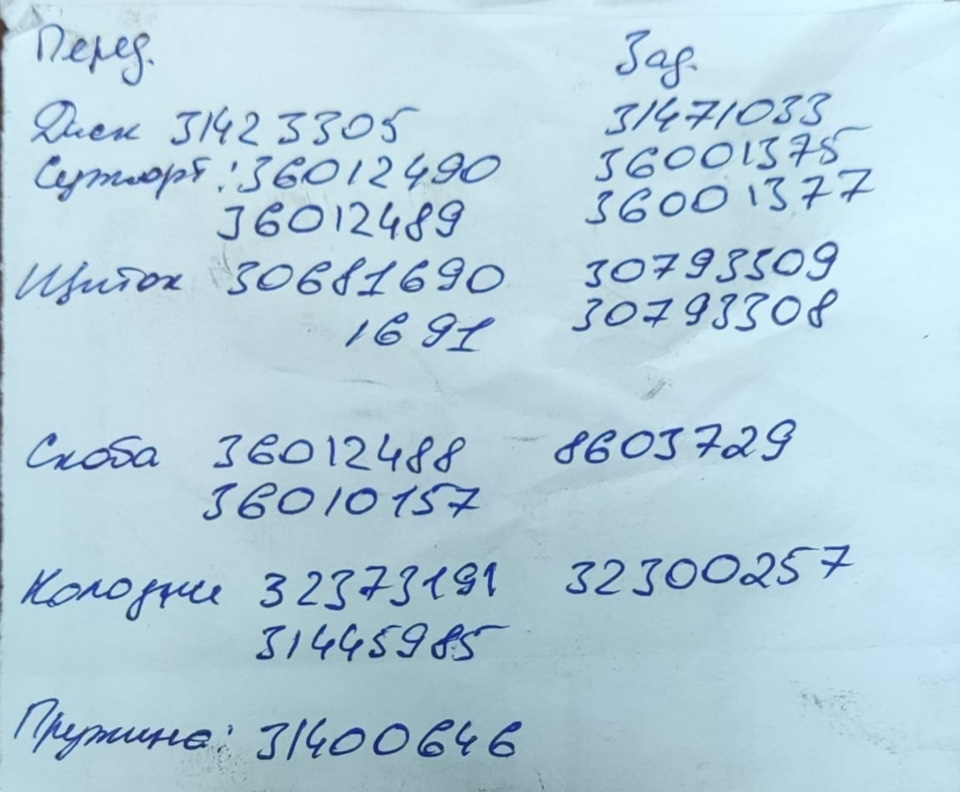 Перед. Зад.
Диск 31423305 31471033
Суппорт: 36012490 36001375
36012489 36001377
Щиток 30681690 30793309
1691 30793308
Скоба 36012488 8603729
36010157
Колодки 32373191 32300257
31445985
Пружина: 31400646